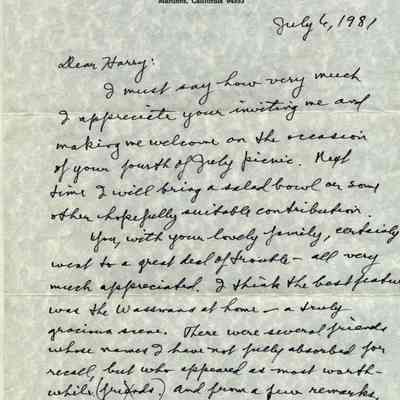 Martinez, California 94553
July 6, 1981
Dear Harry:
I must say how very much
I appreciate your inviting me and
making me welcome on the occasion
of your fourth of July picnic. Next
time I will bring a salad bowl or some
other hopefully suitable contribution.
You, with your lovely family, certainly
went to a great deal of trouble - all very
much appreciated. I think the best feature
was the at home - a truly
gracious scene. There were several friends
whose names I have not fully absorbed for
recall, but who appeared as most worth-
while (friends) and from a few remarks,